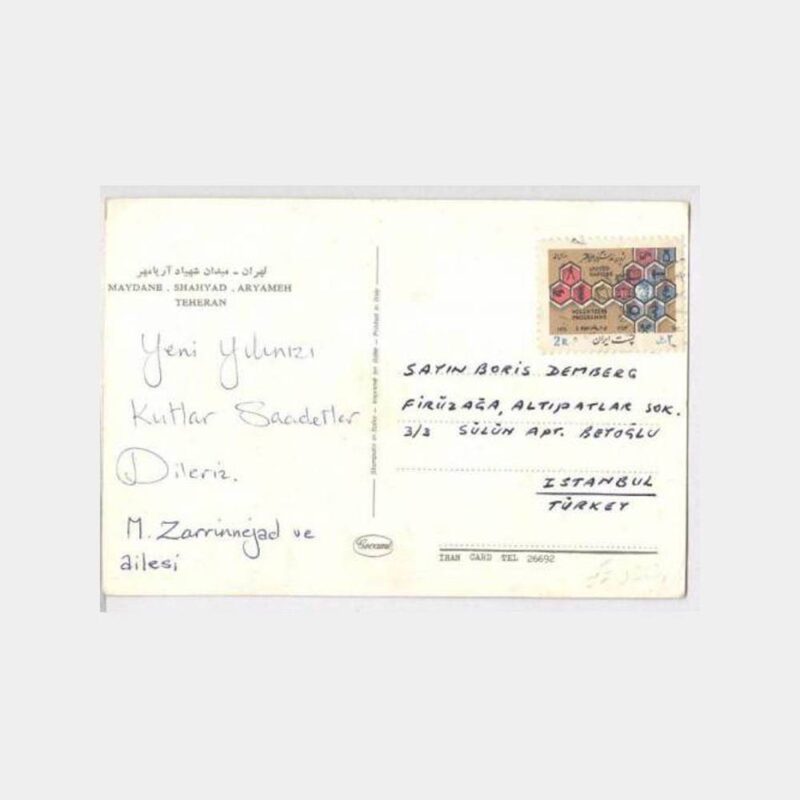 تهران - میدان شهیاد آریامهر
MAYDANE . SHAHYAD . ARYAMEH
TEHERAN
Yeni Yılınızı
Kutlar Saadetler
Dileriz.
M. Zarrinnejad ve
ailesi
Printed in Italy
UNITED
NATIONS
VOLUNTEERS
PROGRAMME
2R.
پست ایران
۲
SAYIN BORİS DEMBERG
FİRÜZAĞA, ALTIPATLAR SOK.
3/3 SÜLÜN APT. BEYOĞLU
ISTANBUL
TÜRKEY
IRAN CARD TEL 26692